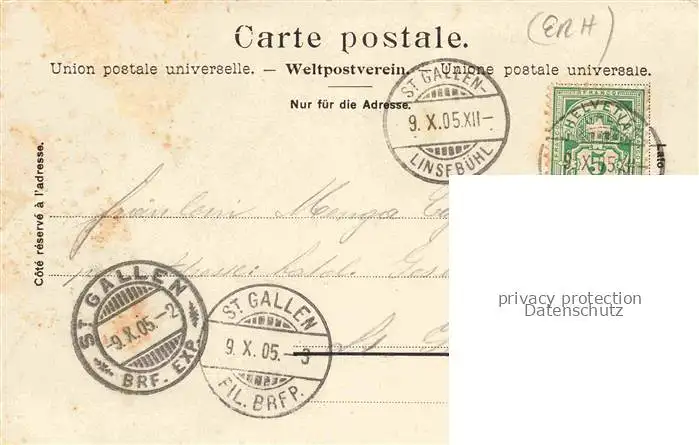 (ERH)
Carte postale.
Union postale universelle. — Weltpostverein. — Unione postale universale.
Nur für die Adresse.
Côté réservé à l'adresse.
ST GALLEN-
9. X. 05. XII-
LINSEBÜHL
FRANCO
HELVETIA
5
Lato
Fräulein Menga
St.
ST GALLEN
9. X. 05. -2
BRF. EXP.
ST GALLEN
9. X. 05. -3
FIL. BRFP.
privacy protection
Datenschutz